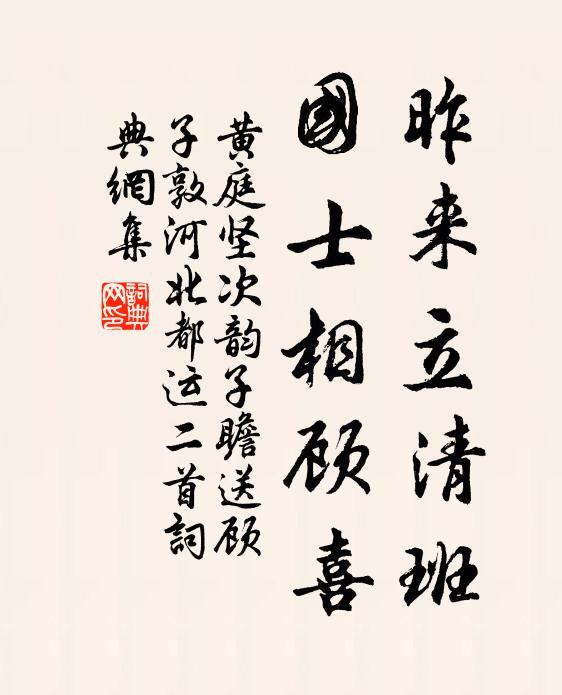 昨来立清班
國士相顾喜
黄庭坚次韵子瞻送顾
子敦河北都运二首詞
典網集
詞典网印